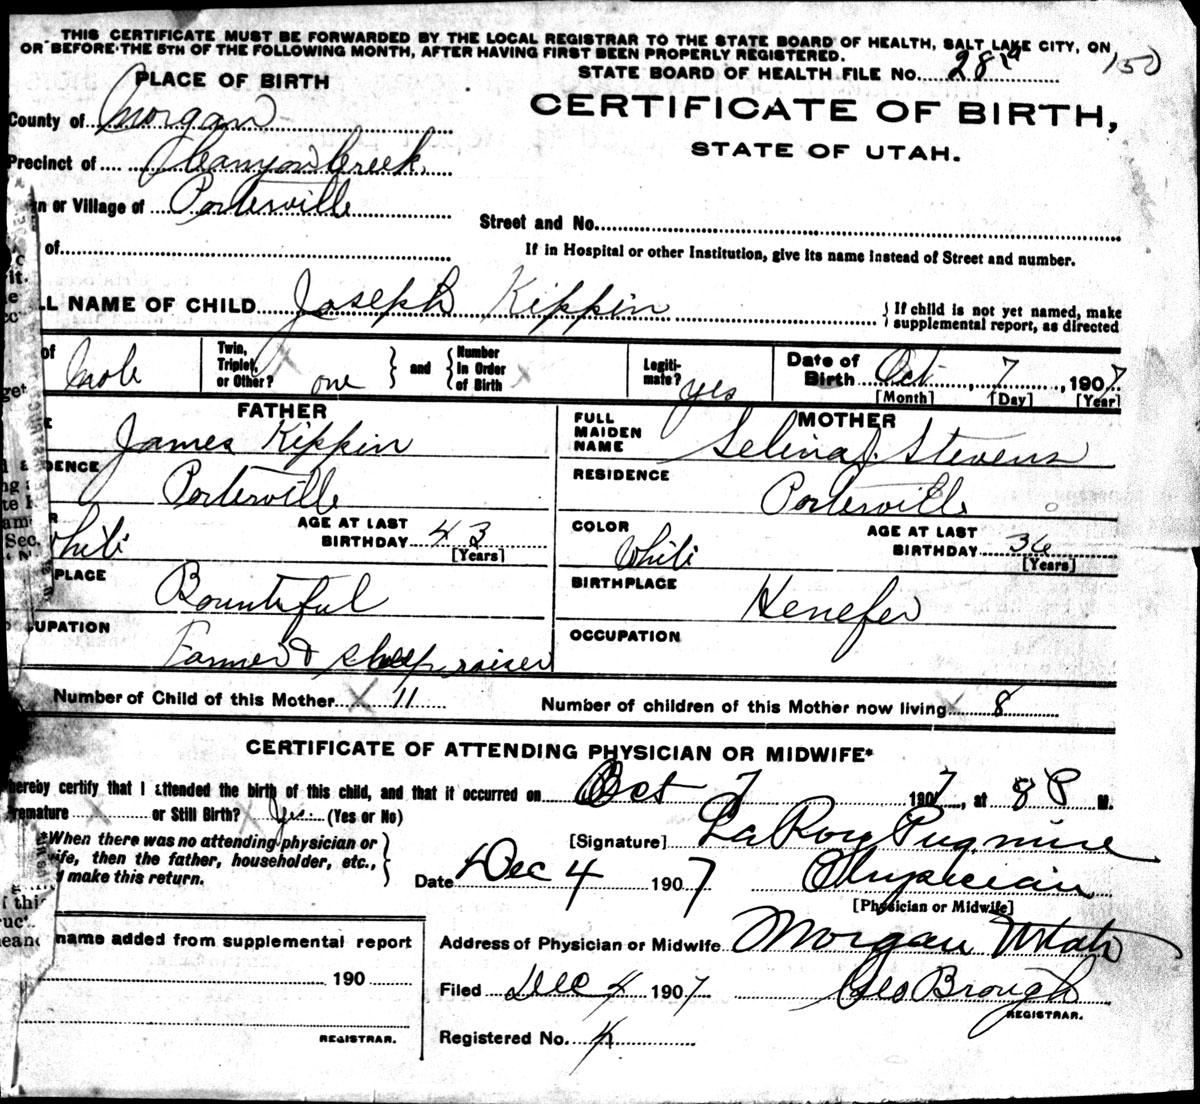 THIS CERTIFICATE MUST BE FORWARDED BY THE LOCAL REGISTRAR TO THE STATE BOARD OF HEALTH, SALT LAKE CITY, ON
OR BEFORE THE 5TH OF THE FOLLOWING MONTH, AFTER HAVING FIRST BEEN PROPERLY REGISTERED.
STATE BOARD OF HEALTH FILE No. 28 150
PLACE OF BIRTH
CERTIFICATE OF BIRTH,
STATE OF UTAH.
County of Morgan
Precinct of Canyon Creek
n or Village of Porterville
Street and No.
of
If in Hospital or other Institution, give its name instead of Street and number.
LL NAME OF CHILD Joseph Kippin
If child is not yet named, make
supplemental report, as directed
of Male
Twin,
Triplet,
or Other? one
and
Number
in Order
of Birth
Legiti-
mate? yes
Date of
Birth Oct 7, 1907
[Month] [Day] [Year]
FATHER
James Kippin
FULL
MAIDEN
NAME
MOTHER
Selina J. Stevens
DENCE
Porterville
RESIDENCE
Porterville
White
AGE AT LAST
BIRTHDAY 43
[Years]
COLOR
White
AGE AT LAST
BIRTHDAY 36
[Years]
PLACE
Bountiful
BIRTHPLACE
Henefer
UPATION
Farmer & sheep raiser
OCCUPATION
Number of Child of this Mother 11
Number of children of this Mother now living 8
CERTIFICATE OF ATTENDING PHYSICIAN OR MIDWIFE*
hereby certify that I attended the birth of this child, and that it occurred on Oct 7 1907, at 8 P M.
remature or Still Birth? Yes (Yes or No)
*When there was no attending physician or
ife, then the father, householder, etc.,
d make this return.
[Signature] LaRoy Pugmire
Date Dec 4 1907
Physician
[Physician or Midwife]
name added from supplemental report
190
REGISTRAR.
Address of Physician or Midwife Morgan Utah
Filed Dec 4 1907
Geo Brough
REGISTRAR.
Registered No. 4